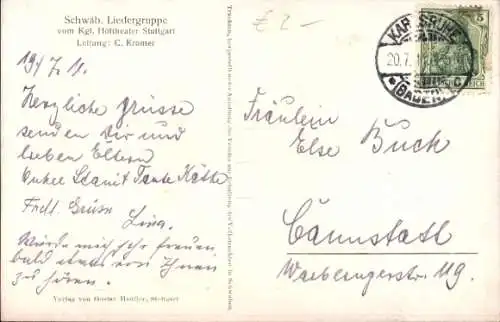 Schwäb. Liedergruppe
vom Kgl. Hoftheater Stuttgart
Leitung: C. Kromer
19/7 11.
Herzliche Grüsse
senden Dir und
lieben Eltern
Onkel Tante Käthe
Frdl. Grüsse
Lina.
Würde mich sehr freuen
bald etwas von Ihnen
zu hören.
Verlag von Gustav Stuttgart
£ 2-
KARLSRUHE
20.7.
(BADEN)
C
5
REICH
Fräulein
Else Buck
Cannstatt
Waiblingerstr. 119.